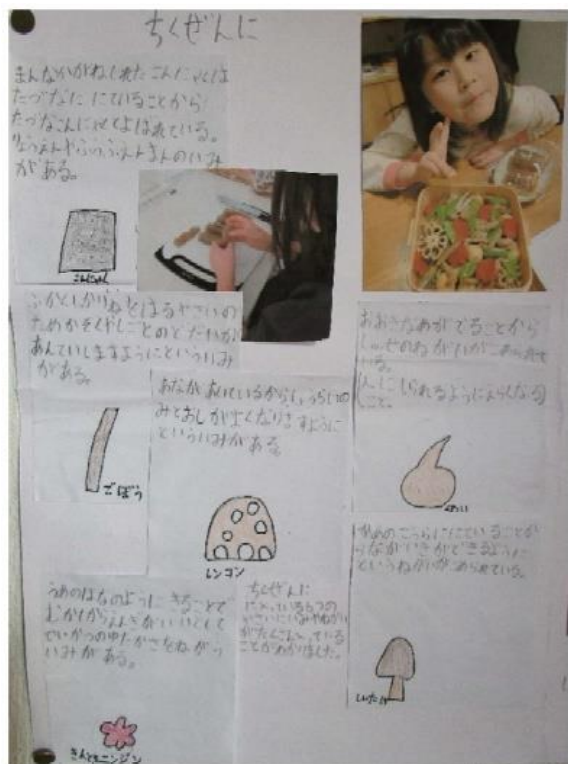 ちくぜんに
まんなかがねじれたこんにゃくは
たづなににていることから
たづなこんにゃくとよばれている。
りょうえんやふうふえんまんのいみ
がある。
こんにゃく
ふかくしっかりねをはるやさいの
ためかぞくやしごとのどだいが
あんていしますようにといういみ
がある。
ごぼう
あながあいているからしょうらいの
みとおしがよくなりますように
といういみがある。
レンコン
おおきなめがでることから
しゅっせのねがいがこめられて
いる。
(人にしられるようにえらくなる
こと。
くわい
かめのこうらににていることか
らながいきができるように
というねがいがこめられている。
しいたけ
うめのはなのようにきることで
むかしからえんぎがいいとして
せいかつのゆたかさをねがう
いみがある。
きんときニンジン
ちくぜんに
にはいっている6つの
やさいにいみやねがい
がたくさんはいっている
ことがわかりました。